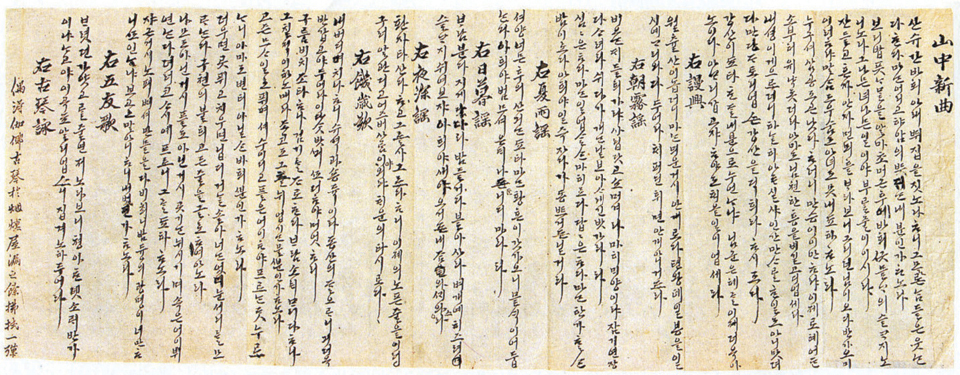 山中新曲
산슈간 바회 아래 뛰집을 짓노라 ᄒᆞ니 그 모론 남들은 웃ᄂᆞᆫ
다 ᄒᆞᆫ다마ᄂᆞᆫ 어리고 햐암의 뜻의ᄂᆞᆫ 내 분인가 ᄒᆞ노라
보리밥 픗ᄂᆞ믈을 알마초 머근 후에 바횟 긋 믉ᄀᆞ의 슬ᄏᆞ지 노
니노라 그나믄 녀나믄 일이야 부ᄅᆞᆯ 줄이 이시랴
잔 들고 혼자 안자 먼 뫼흘 ᄇᆞ라보니 그리던 님이 오다 반가옴이
이러ᄒᆞ랴 말ᄉᆞᆷ도 우움도 아녀도 몯내 됴하 ᄒᆞ노라
누고셔 삼공도곤 낫다 ᄒᆞ더니 만승이 이만ᄒᆞ랴 이제로 헤어든
소부 허위 냑돗더라 아마도 님쳔 한흥을 비길 곳이 업세라
내 셩이 게으르더니 하ᄂᆞᆯ히 아ᄅᆞ실샤 인간 만ᄉᆞᄅᆞᆯ ᄒᆞᆫ 일도 아니 맛뎌
다만당 ᄃᆞ토리 업슨 강산을 딕희라 ᄒᆞ시도다
강산이 됴타 ᄒᆞᆫᄃᆞᆯ 내 분으로 누언ᄂᆞ냐 님군 은혜ᄅᆞᆯ 이제 더욱 아
노이다 아므리 갑고쟈 ᄒᆞ야도 ᄒᆡ올 일이 업세라
右謾興
월츌산이 놉더니마ᄂᆞᆫ 믜운 거시 안개로다 텬왕 뎨일봉을 일
시예 ᄀᆞ리와다 두어라 ᄒᆡ 퍼딘 휘면 안개 아니 거드랴
右朝霧謠
비오ᄂᆞᆫᄃᆡ 들희 가랴 사립 닷고 쇼 머겨라 마히 ᄆᆡ양이랴 잠기 연장
다ᄉᆞ려라 쉬다가 개ᄂᆞᆫ 날 보아 ᄉᆞ래 긴 밧 가라라
심심은 ᄒᆞ다마ᄂᆞᆫ 일 업슬ᄉᆞᆫ 마히로다 답답은 ᄒᆞ다마ᄂᆞᆫ 한가ᄒᆞᆯᄉᆞᆫ
밤이로다 아ᄒᆡ야 일즉 자다가 동 트거든 닐거라
右夏雨謠
셕양 넘은 후에 산긔ᄂᆞᆫ 됴타마ᄂᆞᆫ 황혼이 갓가오니 믈ᄉᆡᆨ이 어둡
ᄂᆞᆫ다 아ᄒᆡ야 범 므셔온ᄃᆡ 나ᄃᆞᆫ니디 마라라
右日暮謠
ᄇᆞ람 분다 지게 다다라 밤 들거다 블 아사라 벼개예 히즈려
슬ᄏᆞ지 쉬여 보쟈 아ᄒᆡ야 새야 오거든 내 ᄌᆞᆷ와 ᄭᆡ와스라
右夜深謠
환자 타 산다 ᄒᆞ고 그ᄅᆞᆯ사 그르다 ᄒᆞ니 이제의 노픈 줄을 이렁
구러 알관디고 어즈버 사ᄅᆞᆷ이야 외랴 ᄒᆡ운의 타시로다
右饑歲歎
내 버디 몃치나 ᄒᆞ니 슈셕과 숑듁이라 동산의 ᄃᆞᆯ 오르니 긔 더옥
반갑고야 두어라 이 다ᄉᆞᆺ 밧긔 또 더ᄒᆞ야 머엇ᄒᆞ리
구룸 비치 조타 ᄒᆞ나 검기ᄅᆞᆯ ᄌᆞ로 ᄒᆞᆫ다 ᄇᆞ람 소ᄅᆡ ᄆᆞᆰ다 ᄒᆞ나
그칠 적이 하노매라 조코도 그츨 뉘 업기ᄂᆞᆫ 믈뿐인가 ᄒᆞ노라
고즌 므스 일로 퓌며셔 쉬이 디고 플은 어이ᄒᆞ야 프르ᄂᆞᆫ ᄃᆞᆺ 누르
ᄂᆞ니 아마도 변티 아닐ᄉᆞᆫ 바회뿐인가 ᄒᆞ노라
더우면 곳 퓌고 치우면 닙 디거ᄂᆞᆯ 솔아 너ᄂᆞᆫ 얻디 눈서리ᄅᆞᆯ 모
ᄅᆞᄂᆞᆫ다 구쳔의 블희 고ᄃᆞᆫ 줄을 글로 ᄒᆞ야 아노라
나모도 아닌 거시 플도 아닌 거시 곳기ᄂᆞᆫ 뉘 시기며 속은 어이 뷔
연ᄂᆞᆫ다 뎌러코 ᄉᆞ시예 프르니 그를 됴하 ᄒᆞ노라
쟈근 거시 노피 떠셔 만믈을 다 비취니 밤듕의 광명이 너만ᄒᆞ
니 또 인ᄂᆞ냐 보고도 말 아니 ᄒᆞ니 내 벋인가 ᄒᆞ노라
右五友歌
ᄇᆞ렷던 가얏고ᄅᆞᆯ 줄 언저 노라보니 쳥아ᄒᆞᆫ 녯 소ᄅᆡ 반가
이 나ᄂᆞᆫ고야 이 곡됴 알 리 업스니 집 겨 노하 두어라
右古琴詠
偏濟伽倻古琴於烟煤屋漏之餘拂拭一彈